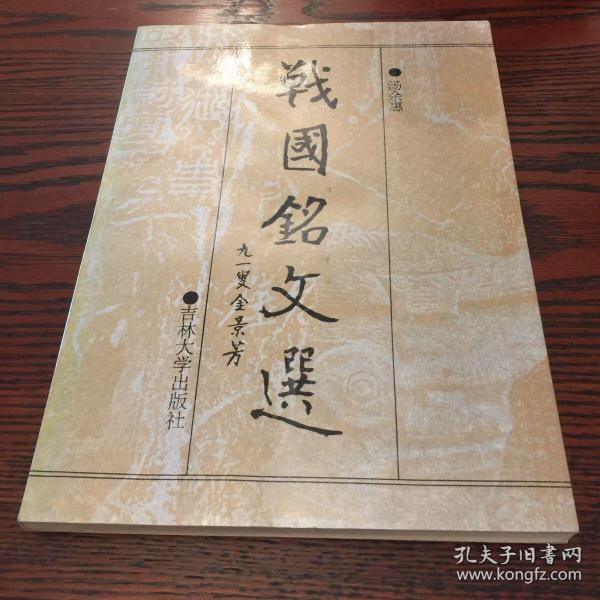 汤余惠
戰國銘文選
九一叟金景芳
吉林大学出版社
孔夫子旧書网
www.kongfz.com